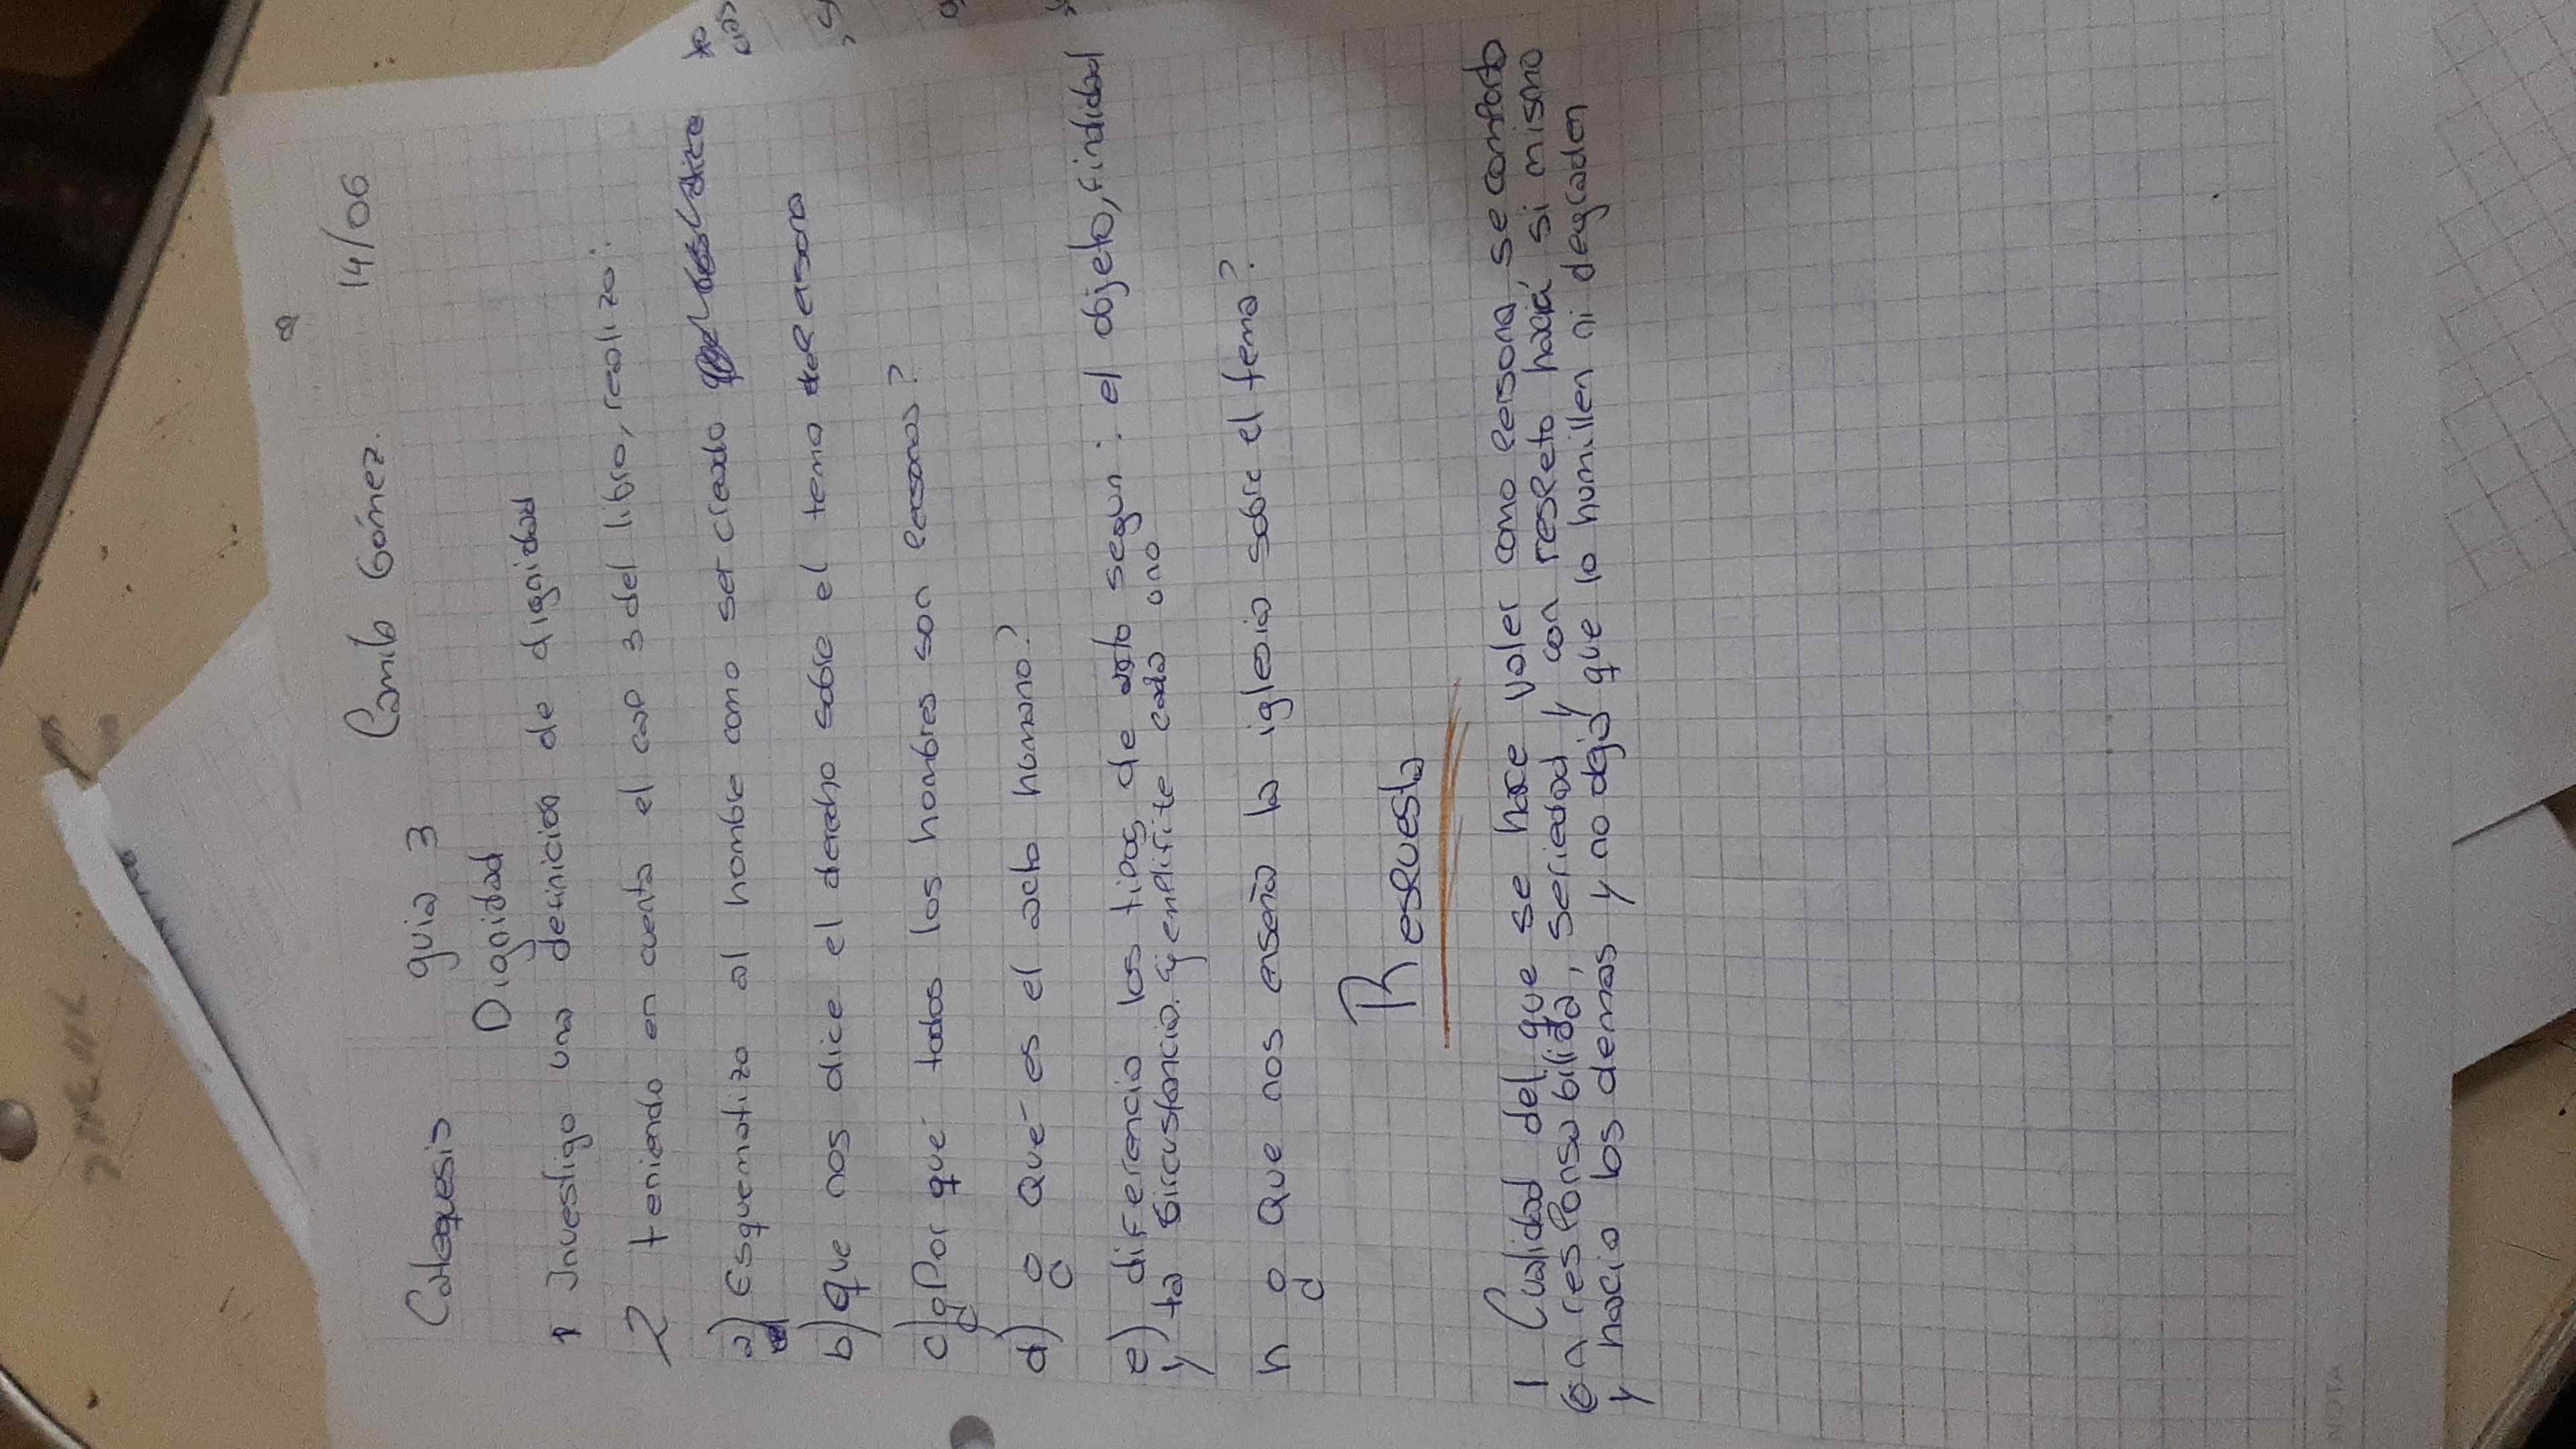 Camilo Gómez. 14/06
Catequesis guia 3
Dignidad
1 Investigo una definicion de dignidad
2 teniendo en cuenta el cap 3 del libro, realizo:
a) Esquematizo al hombre como ser creado
b) que nos dice el derecho sobre el tema persona
c) ¿Por qué todos los hombres son personas?
d) ¿ Qué es el acto humano?
e) diferencio los tipos de acto segun: el objeto, findidad
y la Circustancia. Ejemplifite cada uno
h ¿ Que nos enseña la iglesia sobre el tema?
Respuesta
1 Cualidad del que se hace valer como persona, se comporta
con responsabilida, seriedad y con respeto hacia si mismo
y hacia los demas y no deja que lo humillen ni degraden
NOTA